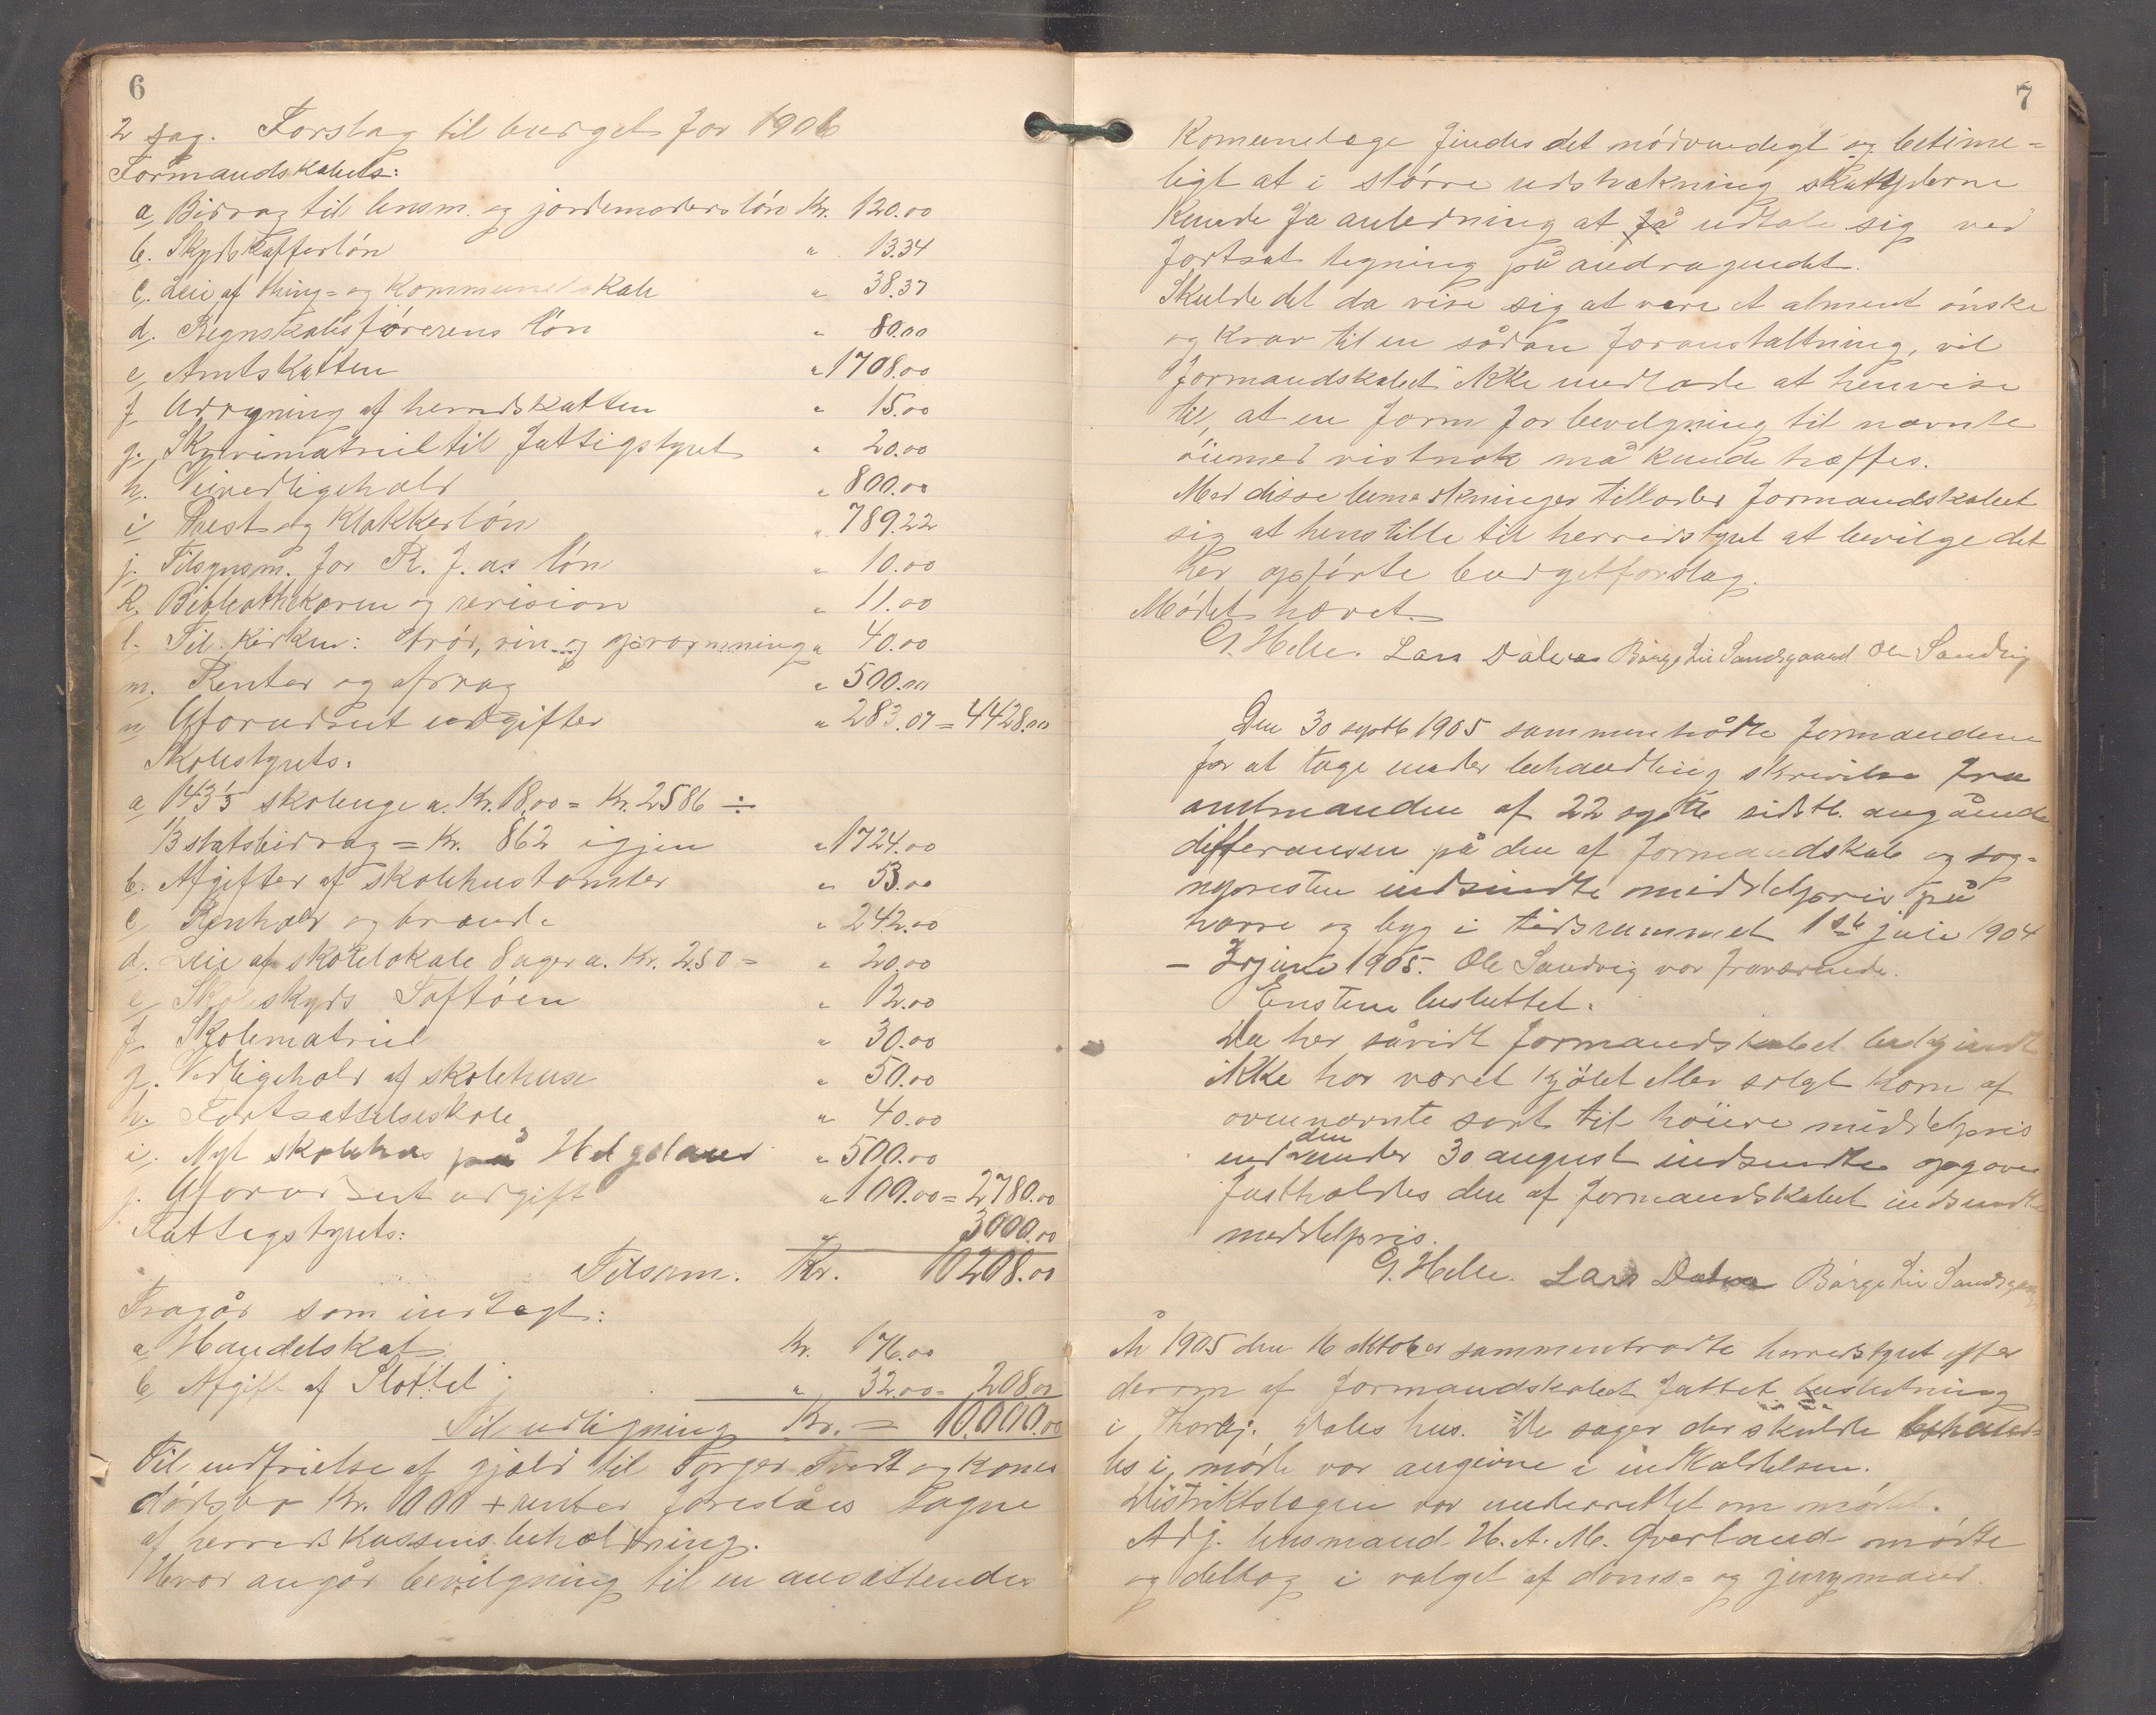 6
2 sag. Forslag til budget for 1906
Formandskabets:
a, Bidrag til lensm. og jordemoderslön Kr. 120.00
b. Skydskafferlön " 13.34
c. Leie af thing- og Kommunelokale " 38.37
d. Regnskabsförerens lön " 80.00
e, Amtskatten " 1708.00
f, Udregning af herredskatten " 15.00
g. Skrivimatriel til fattigstyret " 20.00
h. Veivedligehold " 800.00
i, Prest og Klokkerlön " 789.22
j. Tilsynsm. for R. f. as lön " 10.00
k. Bibliothekaren og revision " 11.00
l. Til Kirken: brød, vin og opvarmning " 40.00
m. Renter og afdrag " 500.00
n, Uforudset udgifter " 283.07 = 4428.00
Skolestyrets:
a, 143⅔ skoleuge a. Kr. 18,00 = Kr. 2586 ÷
⅓ statsbidrag = Kr. 862 igjen " 1724.00
b. Afgifter af skolehustomter " 53.00
c, Renhold og brænde " 242.00
d. Leie af skolelokale 8 uger a. Kr. 2.50 = " 20.00
e, Skoleskyds Loftöen " 12.00
f, Skolematriel " 30.00
g. Vedligehold af skolehuse " 50.00
h. Fortsættelseskole " 40.00
i. Nyt skolehus på Helgeland " 500.00
j. Uforudset udgift " 109.00 = 2780.00
Fattigstyrets: " 3000.00
Tilsam. Kr. 10208.00
Fragår som indtægt:
a, Handelskat Kr. 176.00
b, Afgift af Slottet " 32.00 = 208.00
Til udligning Kr. = 10.000.00
Til indfrielse af gjæld til Torger Tvedt og Kones
dödsbo Kr. 1000 + renter foreslåes tagne
af herredskassens beholdning.
Hvor angår bevilgning til en ansættende
7
Komunelæge findes det nödvendigt og betime-
ligt at i större udstrækning skatyderne
kunde fa anledning at få udtale sig ved
fortsat tegning på andragendet.
Skulde det da vise sig at være et alment önske
og krav til en sådan foranstaltning, vil
formandskabet ikke undlade at henvise
til, at en form for bevilgning til nævnte
öiemed vistnok må kunde træffes.
Med disse bemærkninger tillader formandskabet
sig at henstille til herredstyret at bevilge det
her opförte budgetforslag.
Mödet hævet.
G. Helle. Lars Dalva Börge Lie Sandsgaard Ole Sandvig
Den 30 septb 1905 sammentrådte formændene
for at tage under behandling skrivelse fra
amtmanden af 22 septb sidstl. angående
differansen på den af formandskab og sog-
nepresten indsendte middelpris på
havre og byg i tidsrummet 1ste juli 1904
– 30 juni 1905. Ole Sandvig var fraværende.
Enstem. besluttet:
Da her såvidt formandskabet bekjendt
ikke har været kjöbt eller solgt korn af
ovennævnte sort til höiere middelpris
end den under 30 august indsendte opgave
fastholdes den af formandskabet indsendte
middelpris.
G. Helle. Lars Dalva Börge Lie Sandsgaard
År 1905 den 16 oktober sammentrådte herredstyret efter
derom af formandskabet fattet beslutning
i Thorbj. Dales hus. De sager der skulde behand-
les i möde var angivne i indkaldelsen.
Distriktslægen var underrettet om mödet.
Adj. lensmand H. A. M. Qverland mödte
og deltog i valget af doms- og jurymænd.